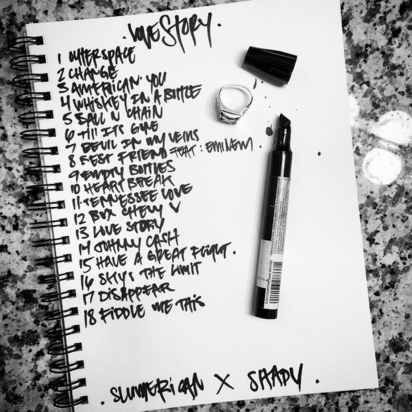 . LOVE STORY .
1 OUTERSPACE
2 CHANGE
3 AMERICAN YOU
4 WHISKEY IN A BOTTLE
5 BALL N CHAIN
6 Till ITS GONE
7 DEVIL IN MY VEINS
8 BEST FRIEND FEAT: EMINEM
9 EMPTY BOTTLES
10 HEART BREAK
11 TENNESSEE LOVE
12 BOX CHEVY V
13 LOVE STORY
14 JOHNNY CASH
15 HAVE A GREAT FLIGHT.
16 SKYS THE LIMIT
17 DISAPPEAR
18 FIDDLE ME THIS
. SLUMERICAN X SHADY .